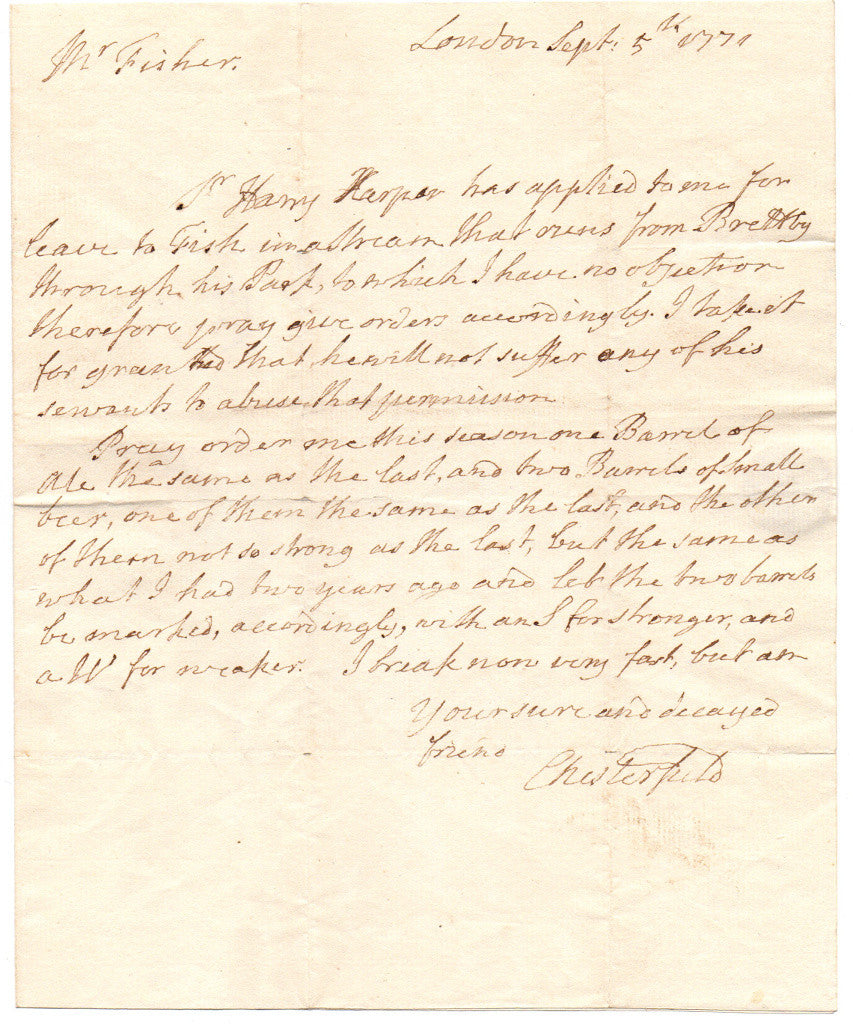 London Sept: 5th 1771
Mr Fisher.
Sr Harry Harper has applied to me for
leave to Fish in a Stream that runs from Brettby
through his Park, to which I have no objection
therefore pray give orders accordingly. I take it
for granted that he will not suffer any of his
servants to abuse that permission.
Pray order me this season one Barrel of
Ale the same as the last, and two Barrels of Small
beer, one of them the same as the last, and the other
of them not so strong as the last, but the same as
what I had two years ago and let the two barrels
be marked, accordingly, with an S for stronger, and
a W for weaker. I break now very fast, but am
Your sure and decayed
friend
Chesterfield